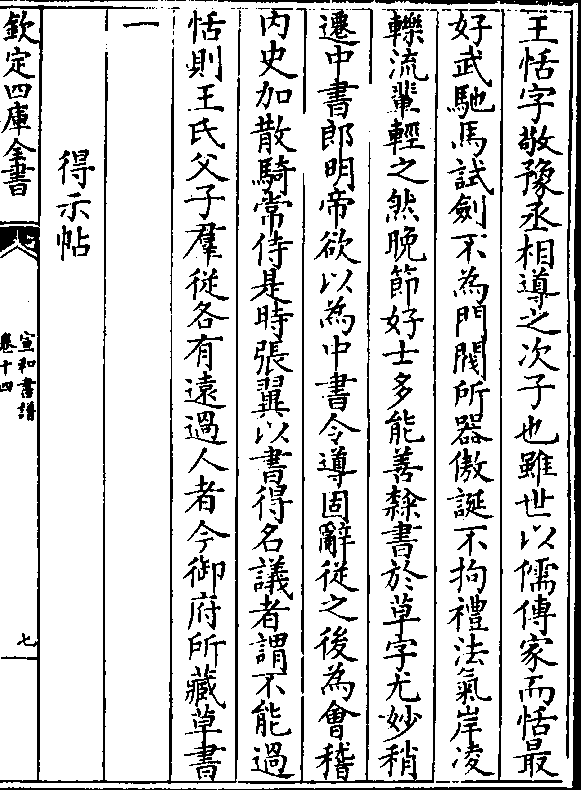 王恬字敬豫丞相導之次子也雖世以儒傳家而恬最
好武馳馬試劍不為門閥所器傲誕不拘禮法氣岸凌
轢流輩輕之然晚節好士多能善𣜩書於草字尤妙稍
遷中書郎明帝欲以為中書令導固辭從之後為會稽
内史加散騎常侍是時張翼以書得名議者謂不能過
恬則王氏父子羣從各有遠過人者今御府所藏草書
一
得示帖
欽定四庫全書
宣和書譜
卷十四
七